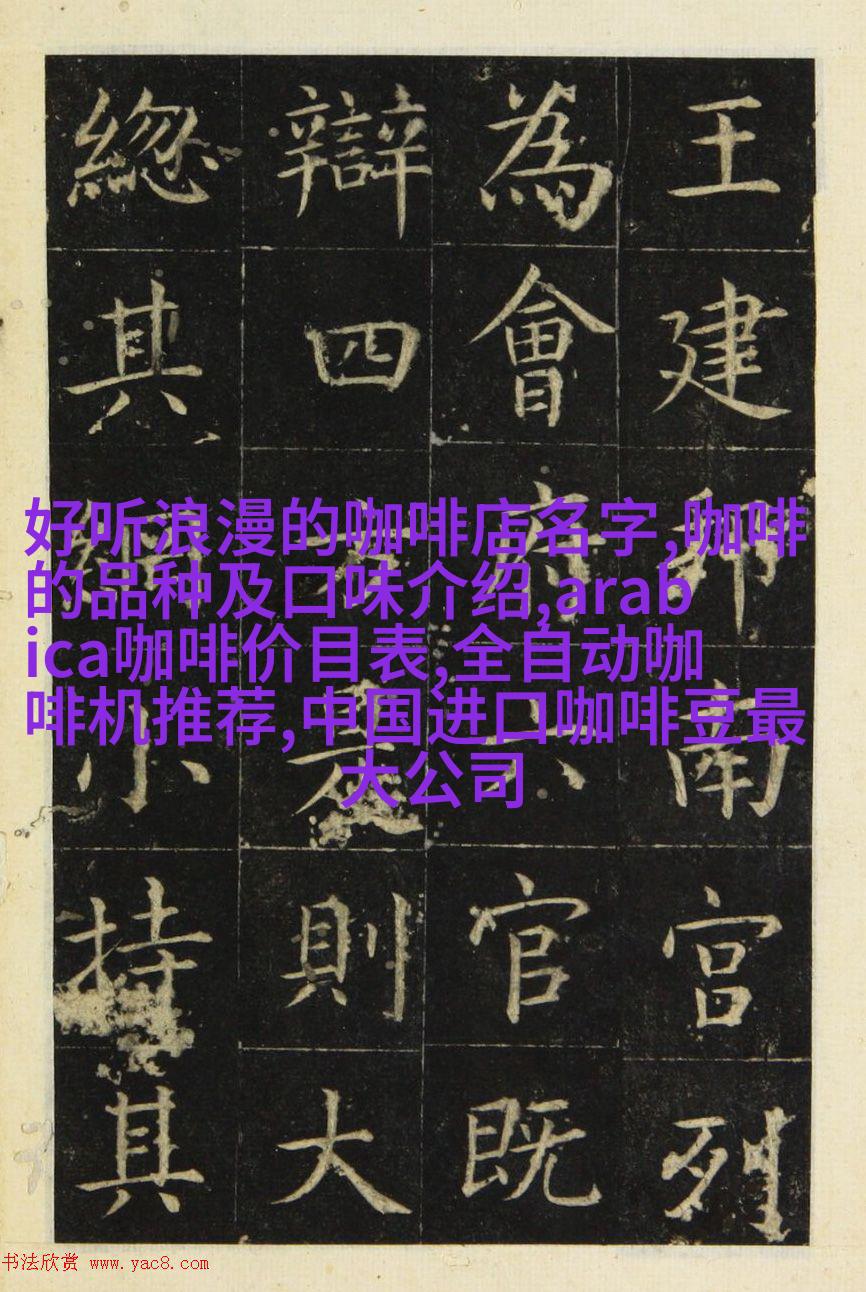 王建邦南宮列
為會府六官既
辯四方是則大
緫其綱小持其
好听浪漫的咖啡店名字,咖啡
的品种及口味介绍,arab
ica咖啡价目表,全自动咖
啡机推荐,中国进口咖啡豆最
大公司
书法欣赏 www.yac8.com